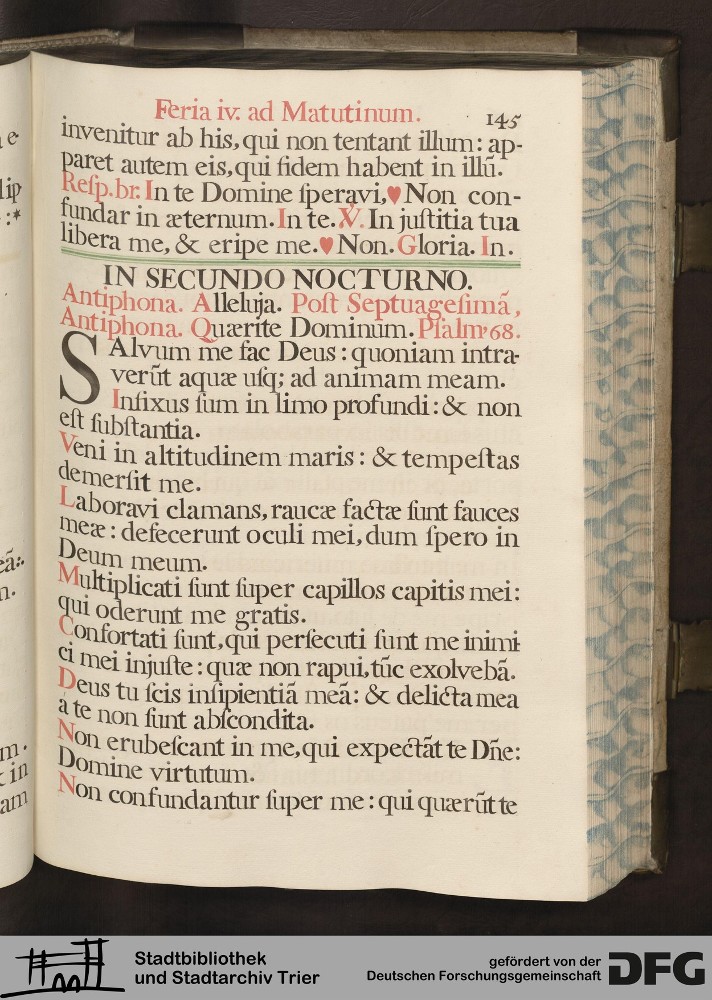 Feria iv. ad Matutinum. 145
invenitur ab his, qui non tentant illum: ap-
paret autem eis, qui fidem habent in illū.
Reſp. br. In te Domine ſperavi, ♥ Non con-
fundar in æternum. In te. ℣. In juſtitia tua
libera me, & eripe me. ♥ Non. Gloria. In.
IN SECUNDO NOCTURNO.
Antiphona. Alleluja. Poſt Septuageſimā,
Antiphona. Quærite Dominum. Pſalm9 68.
SAlvum me fac Deus: quoniam intra-
verūt aquæ uſq; ad animam meam.
Infixus ſum in limo profundi: & non
eſt ſubſtantia.
Veni in altitudinem maris: & tempeſtas
demerſit me.
Laboravi clamans, raucæ factæ ſunt fauces
meæ: defecerunt oculi mei, dum ſpero in
Deum meum.
Multiplicati ſunt ſuper capillos capitis mei:
qui oderunt me gratis.
Confortati ſunt, qui perſecuti ſunt me inimi
ci mei injuſte: quæ non rapui, tūc exolvebā.
Deus tu ſcis inſipientiā meā: & delicta mea
a te non ſunt abſcondita.
Non erubeſcant in me, qui expectāt te Dn̄e:
Domine virtutum.
Non confundantur ſuper me: qui quærūt te
e
lip
: *
eā:.
n.
m.
in
am
Stadtbibliothek
und Stadtarchiv Trier
gefördert von der
Deutschen Forschungsgemeinschaft
DFG